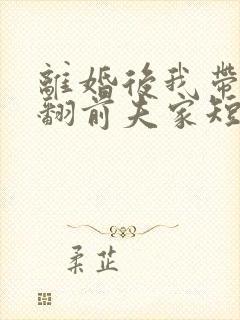 離婚後我帶
翻前夫家短
柔芷